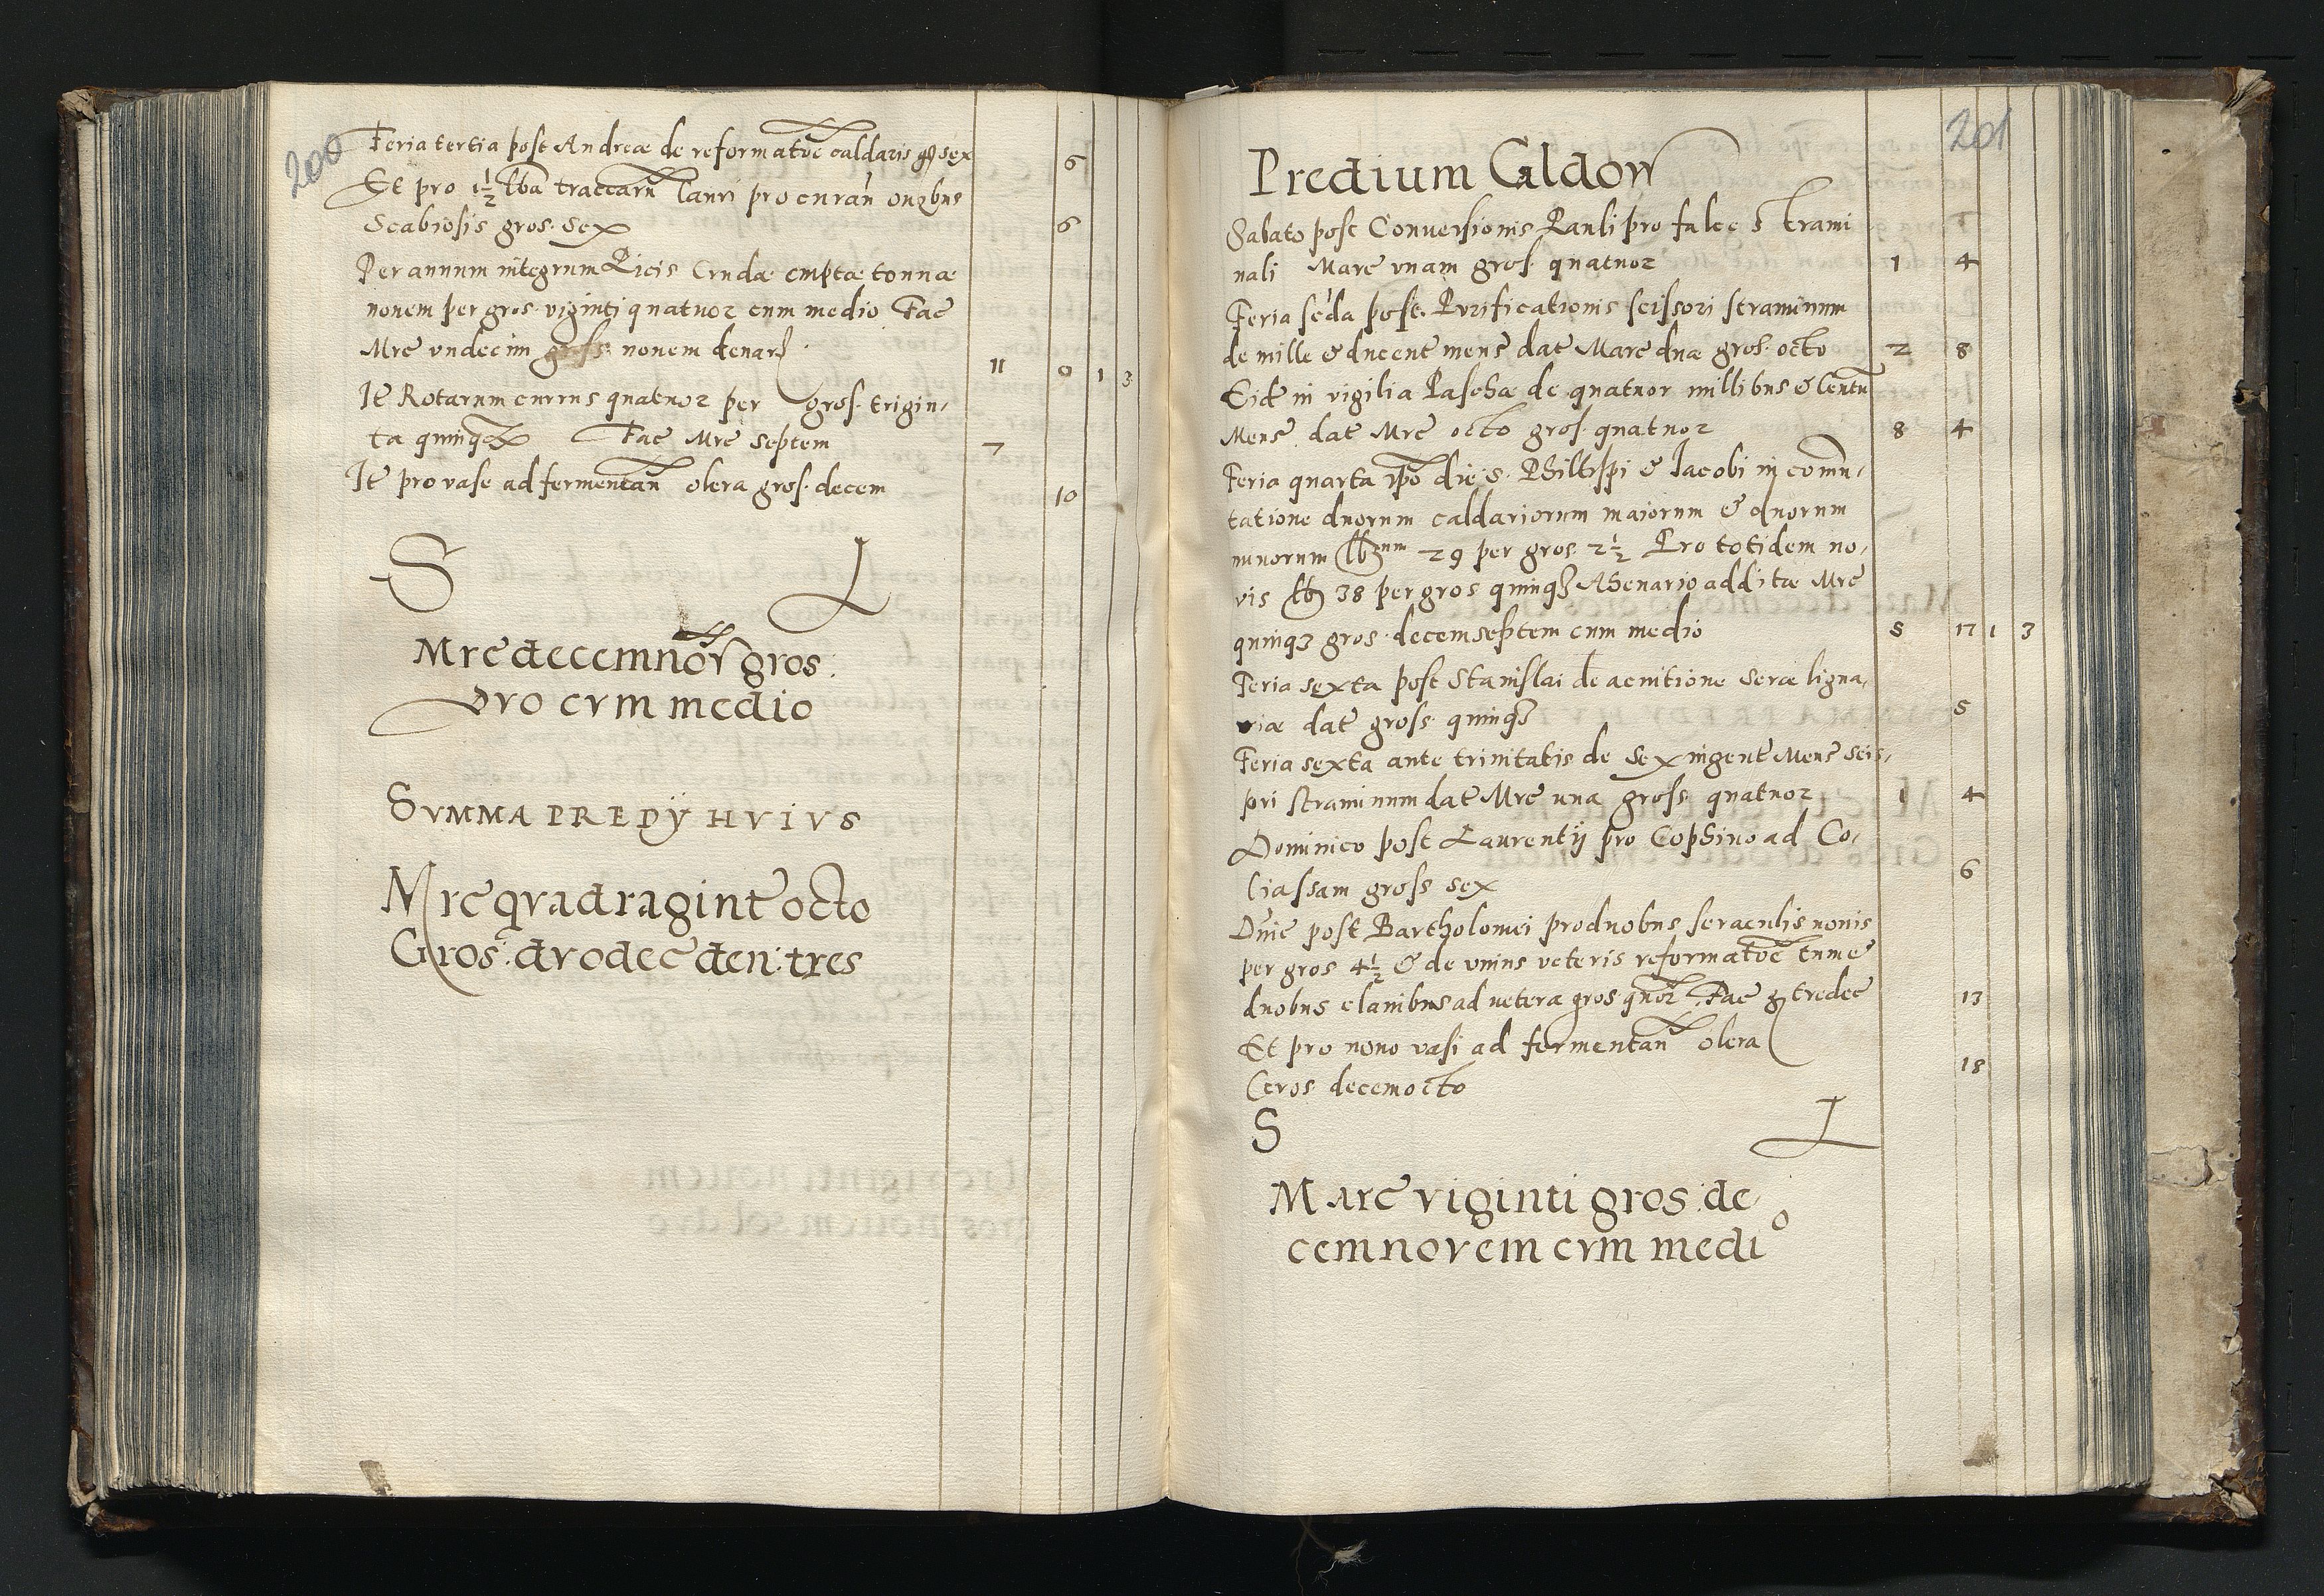 200
Feria tertia post Andreæ de reformatõe caldaris g͞r sex 6
Et pro 1½ lba traccarũ lauri pro curañ ouibus
Scabiosis gros: sex 6
Per annum integrum Picis Crudæ emptæ tonnæ
nouem per gros: viginti quatuor cum medio Fac̃
Mrc̃ vndecim gross: nouem denar 11 0 1 3
It̃ Rotarum currus quatuor per gros: trigin,
ta quinq Fac̃ Mrc̃ septem 7
It̃ pro vase ad fermentañ olera gros: decem 10
S L
Mrc̃ decemnov gros:
dvo cvm medio
SVMMA PREDŸ HVIVS
Mrc̃ qvadragint̃ octo
Gros: dvodec̃ den: tres
201
Predium Gldow
Sabato post Conuersionis Pauli pro falce strami
nali Marc̃ vnam gros: quatuor 1 4
Feria sc̃da post Purificationis scissori straminum
de mille & ducent̃ mens̃ dat̃ Marc̃ duæ gros: octo 2 8
Eid̃ in vigilia Paschæ de quatuor millibus & Centũ
Mens̃ dat̃ Mrc̃ octo gros: quatuor 8 4
Feria quarta ip̃o die S. Philippi & Iacobi in comu,
tatione duorum caldariorum maiorum & duorum
minorum lbrum 29 per gros 2½ Pro totidem no,
vis lb 38 per gros quinq3 Ahenario additæ Mrc̃
quinq3 gros: decemseptem cum medio 5 17 1 3
Feria sexta post Stanislai de acuitione seræ ligna,
riæ dat̃ gross: quinq3 5
Feria sexta ante trinitatis de sexingent̃ Mens̃ scis,
sori straminum dat̃ Mrc̃ una gross: quatuor 1 4
Dominico post Laurentij pro Cophino ad Co,
liassam gross sex 6
Dñic̃ post Bartholomei pro duobus seraculis nouis
per gros 4½ & de vnius veteris reformatõe cum
duobus clauibus ad vetera gros quor Fac̃ g tredec̃ 13
Et pro nouo vasi ad fermentañ olera
Gros: decemocto 18
S L
Marc̃ viginti gros: de,
cemnovem cvm medio